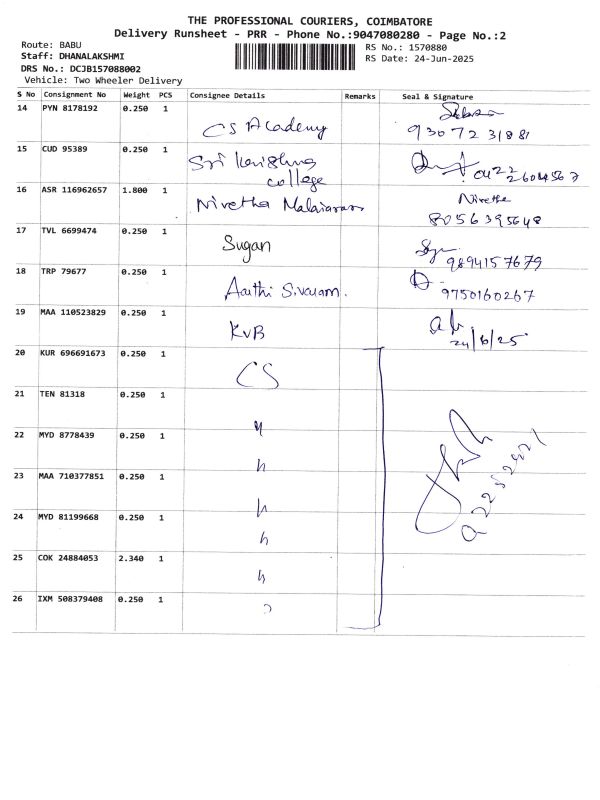 THE PROFESSIONAL COURIERS, COIMBATORE
Delivery Runsheet - PRR - Phone No.:9047080280 - Page No.:2
Route: BABU
Staff: DHANALAKSHMI
DRS No.: DCJB157088002
Vehicle: Two Wheeler Delivery
RS No.: 1570880
RS Date: 24-Jun-2025
S No Consignment No Weight PCS Consignee Details Remarks Seal & Signature
14 PYN 8178192 0.250 1 CS Academy
9307231881
15 CUD 95389 0.250 1 Sri Krishna college
0422
16 ASR 116962657 1.800 1 Nivetha Nivetha
8056395648
17 TVL 6699474 0.250 1 Sugan
9894157679
18 TRP 79677 0.250 1 Aarthi Sivaram.
9750160267
19 MAA 110523829 0.250 1 KVB
24/6/25
20 KUR 696691673 0.250 1 CS
21 TEN 81318 0.250 1
22 MYD 8778439 0.250 1
23 MAA 710377851 0.250 1
24 MYD 81199668 0.250 1
25 COK 24884053 2.340 1
26 IXM 508379408 0.250 1